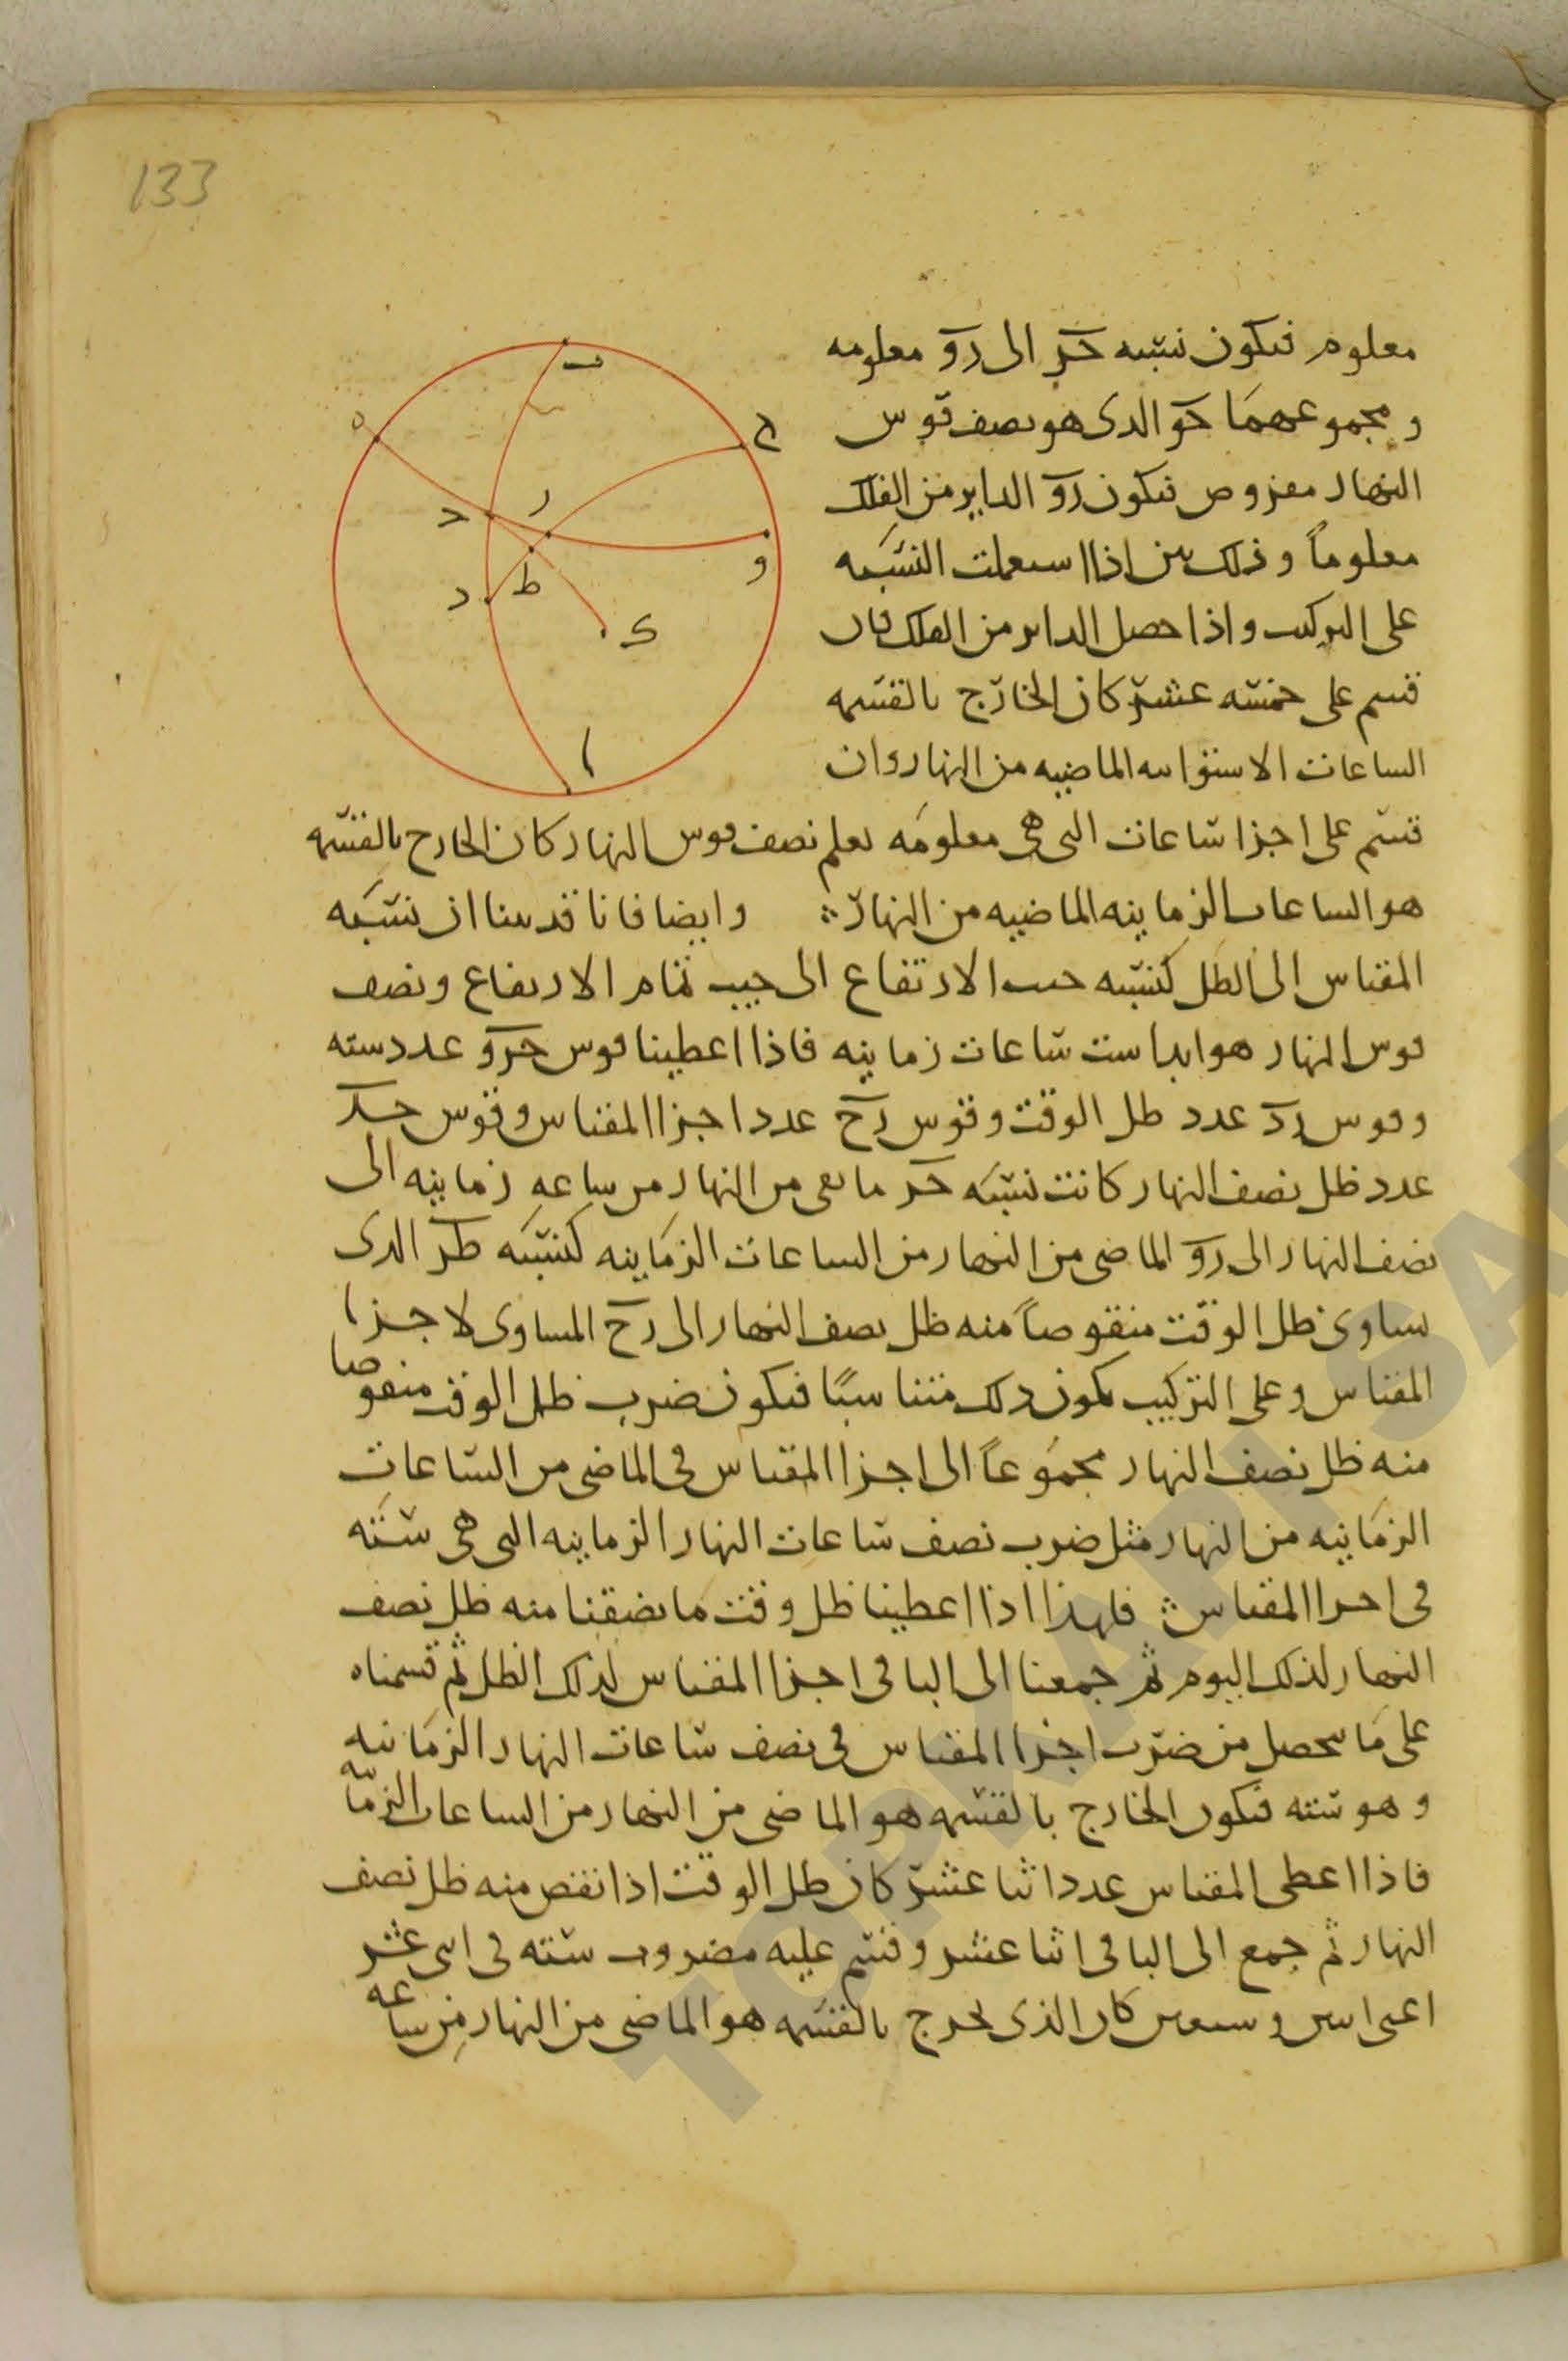 133
معلوم فيكون نسبه حر الى رو معلومه
ومجموعهما حو الدى هو نصف قوس
النهار مفروض فيكون رو الداير من الفلك
معلوماً وذلك بين اذا استعملت النسبه
على التركيب واذا حصل الداير من الفلك فان
قسم على خمسه عشر كان الخارج بالقسمه
الساعات الاستوائيه الماضيه من النهار وان
قسم على اجزا ساعات التى هى معلومه بعلم نصف قوس النهار كان الخارج بالقسمه
هو الساعات الزمانيه الماضيه من النهار وايضا فانا قد بينا ان نسبه
المقياس الى الظل كنسبه جيب الارتفاع الى جيب تمام الارتفاع ونصف
قوس النهار هو ابدا ست ساعات زمانيه فاذا اعطينا قوس حرو عدد سته
وقوس رد عدد ظل الوقت وقوس رح عدد اجزا المقياس وقوس
عدد ظل نصف النهار كانت نسبه حر ما بقى من النهار من ساعه زمانيه الى
نصف النهار الى رو الماضى من النهار من الساعات الزمانيه كنسبه طر الدى
يساوى ظل الوقت منقوصاً منه ظل نصف النهار الى رح المساوى لاجزا
المقياس وعلى التركيب يكون ذلك متناسبًا فيكون ضرب ظل الوقت منقوصا
منه ظل نصف النهار مجموعاً الى اجزا المقياس فى الماضى من الساعات
الزمانيه من النهار مثل ضرب نصف ساعات النهار الزمانيه التى هى سته
فى اجزا المقياس فلهذا اذا اعطينا ظل وقت ما نقصنا منه ظل نصف
النهار لذلك اليوم ثم جمعنا الى الباقى اجزا المقياس لذلك الظل ثم قسمناه
على ما يحصل من ضرب اجزا المقياس فى نصف ساعات النهار الزمانيه
وهو سته فيكون الخارج بالقسمه هو الماضى من النهار من الساعات الزمانيه
فاذا اعطى المقياس عدد اثنا عشر كان ظل الوقت اذا نقص منه ظل نصف
النهار ثم جمع الى الباقى اثنا عشر وقسم عليه مضروب سته فى اثنى عشر
اعنى اثنين وسبعين كان الذى يخرج بالقسمه هو الماضى من النهار من ساعه
ب
ج
ه
ر
ح
و
ط
د
ى
ا
TOPKAPI SA